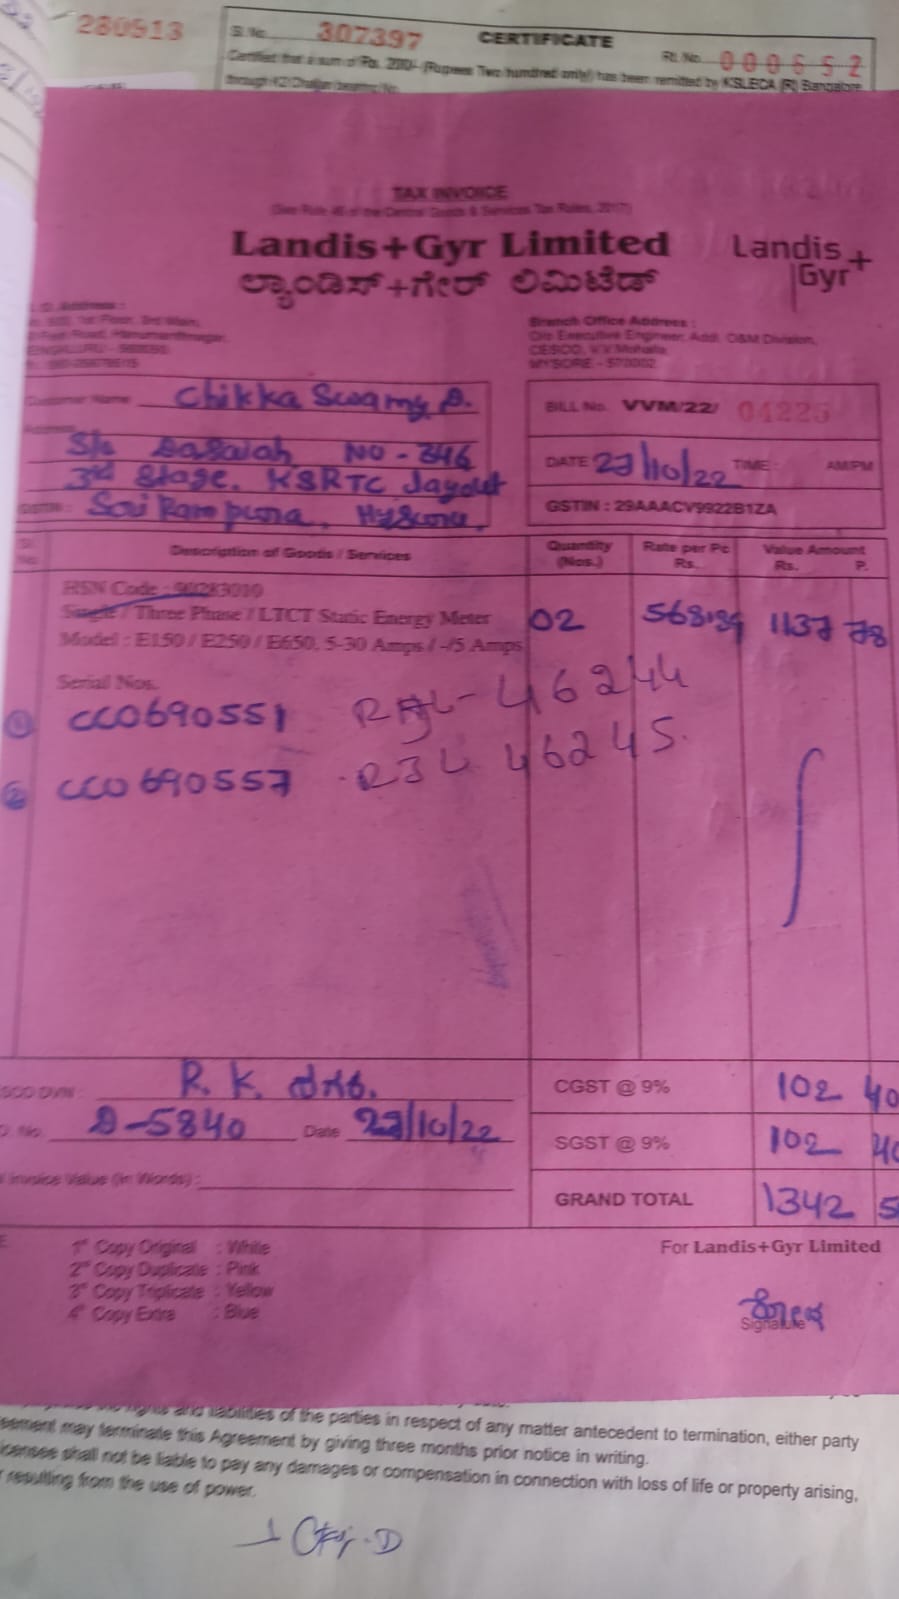 280913
Sl. No. 307397 CERTIFICATE Rt. No. 000652
Certified that a sum of Rs. 200/- (Rupees Two hundred only) has been remitted by KSLECA (R) Bangalore
through K2/Challan bearing No.
TAX INVOICE
(See Rule 46 of the Central Goods & Services Tax Rules, 2017)
Landis+Gyr Limited
Landis+
Gyr
ಲ್ಯಾಂಡಿಸ್+ಗೇರ್ ಲಿಮಿಟೆಡ್
Address :
1st Floor, 3rd Main,
Road, Hanumanthnagar,
Branch Office Address :
O/o Executive Engineer, Add. O&M Division,
CESCO, V.V. Mohalla,
MYSORE - 570002
Customer Name Chikka Swamy D.
BILL No. VVM/22/ 04225
S/o Dasaiah NO-346
3rd Stage, KSRTC Layout
DATE 27/10/22 TIME : AM/PM
GSTIN :
GSTIN : 29AAACV9922B1ZA
Sl. No. Description of Goods / Services Quantity (Nos.) Rate per Pc Rs. Value Amount Rs. P.
HSN Code - 90283010
Single / Three Phase / LTCT Static Energy Meter 02 568.89 1137 78
Model : E150 / E250 / E650, 5-30 Amps / -/5 Amps
Serial Nos.
① CC0690551 46244
② CC0690557 46245
R. K.
CGST @ 9% 102 40
D-5840 Date 27/10/22
SGST @ 9% 102 40
Invoice Value (in Words) :
GRAND TOTAL 1342 5
1st Copy Original : White
2nd Copy Duplicate : Pink
3rd Copy Triplicate : Yellow
4th Copy Extra : Blue
For Landis+Gyr Limited
Signature
rights and liabilities of the parties in respect of any matter antecedent to termination, either party
may terminate this Agreement by giving three months prior notice in writing.
shall not be liable to pay any damages or compensation in connection with loss of life or property arising,
resulting from the use of power.